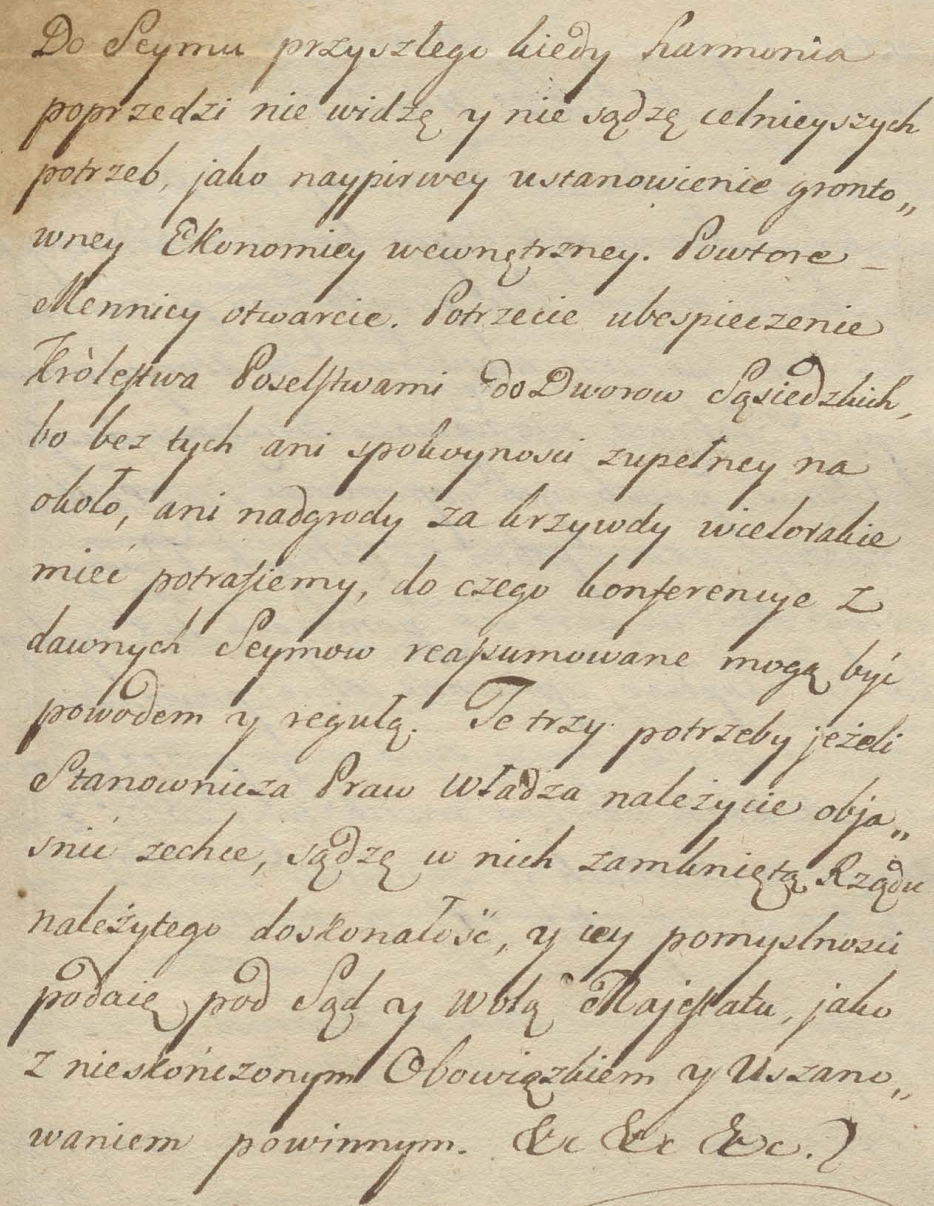 Do Seymu przyszłego kiedy harmonia
poprzedzi nie widzę y nie sądzę celnieyszych
potrzeb, jako naypirwey ustanowienie gronto„
wney Ekonomiey wewnętrzney. Powtore
Mennicy otwarcie. Potrzecie ubespieczenie
Królestwa Poselstwami do Dworow Sąsiedzkich,
bo bez tych ani spokoynosci zupełney na
około, ani nadgrody za krzywdy wielorakie
mieć potrafiemy, do czego konferencye z
dawnych Seymow reassumowane mogą być
powodem y regułą. Te trzy potrzeby jeżeli
Stanownicza Praw Władza należycie obja„
snić zechce, sądzę w nich zamkniętą Rządu
należytego doskonałość, y iey pomyslnosci
podaię pod Sąd y wolą Majestatu, jako
z nieskończonym Obowiązkiem y Uszano„
waniem powinnym. &c &c &c.